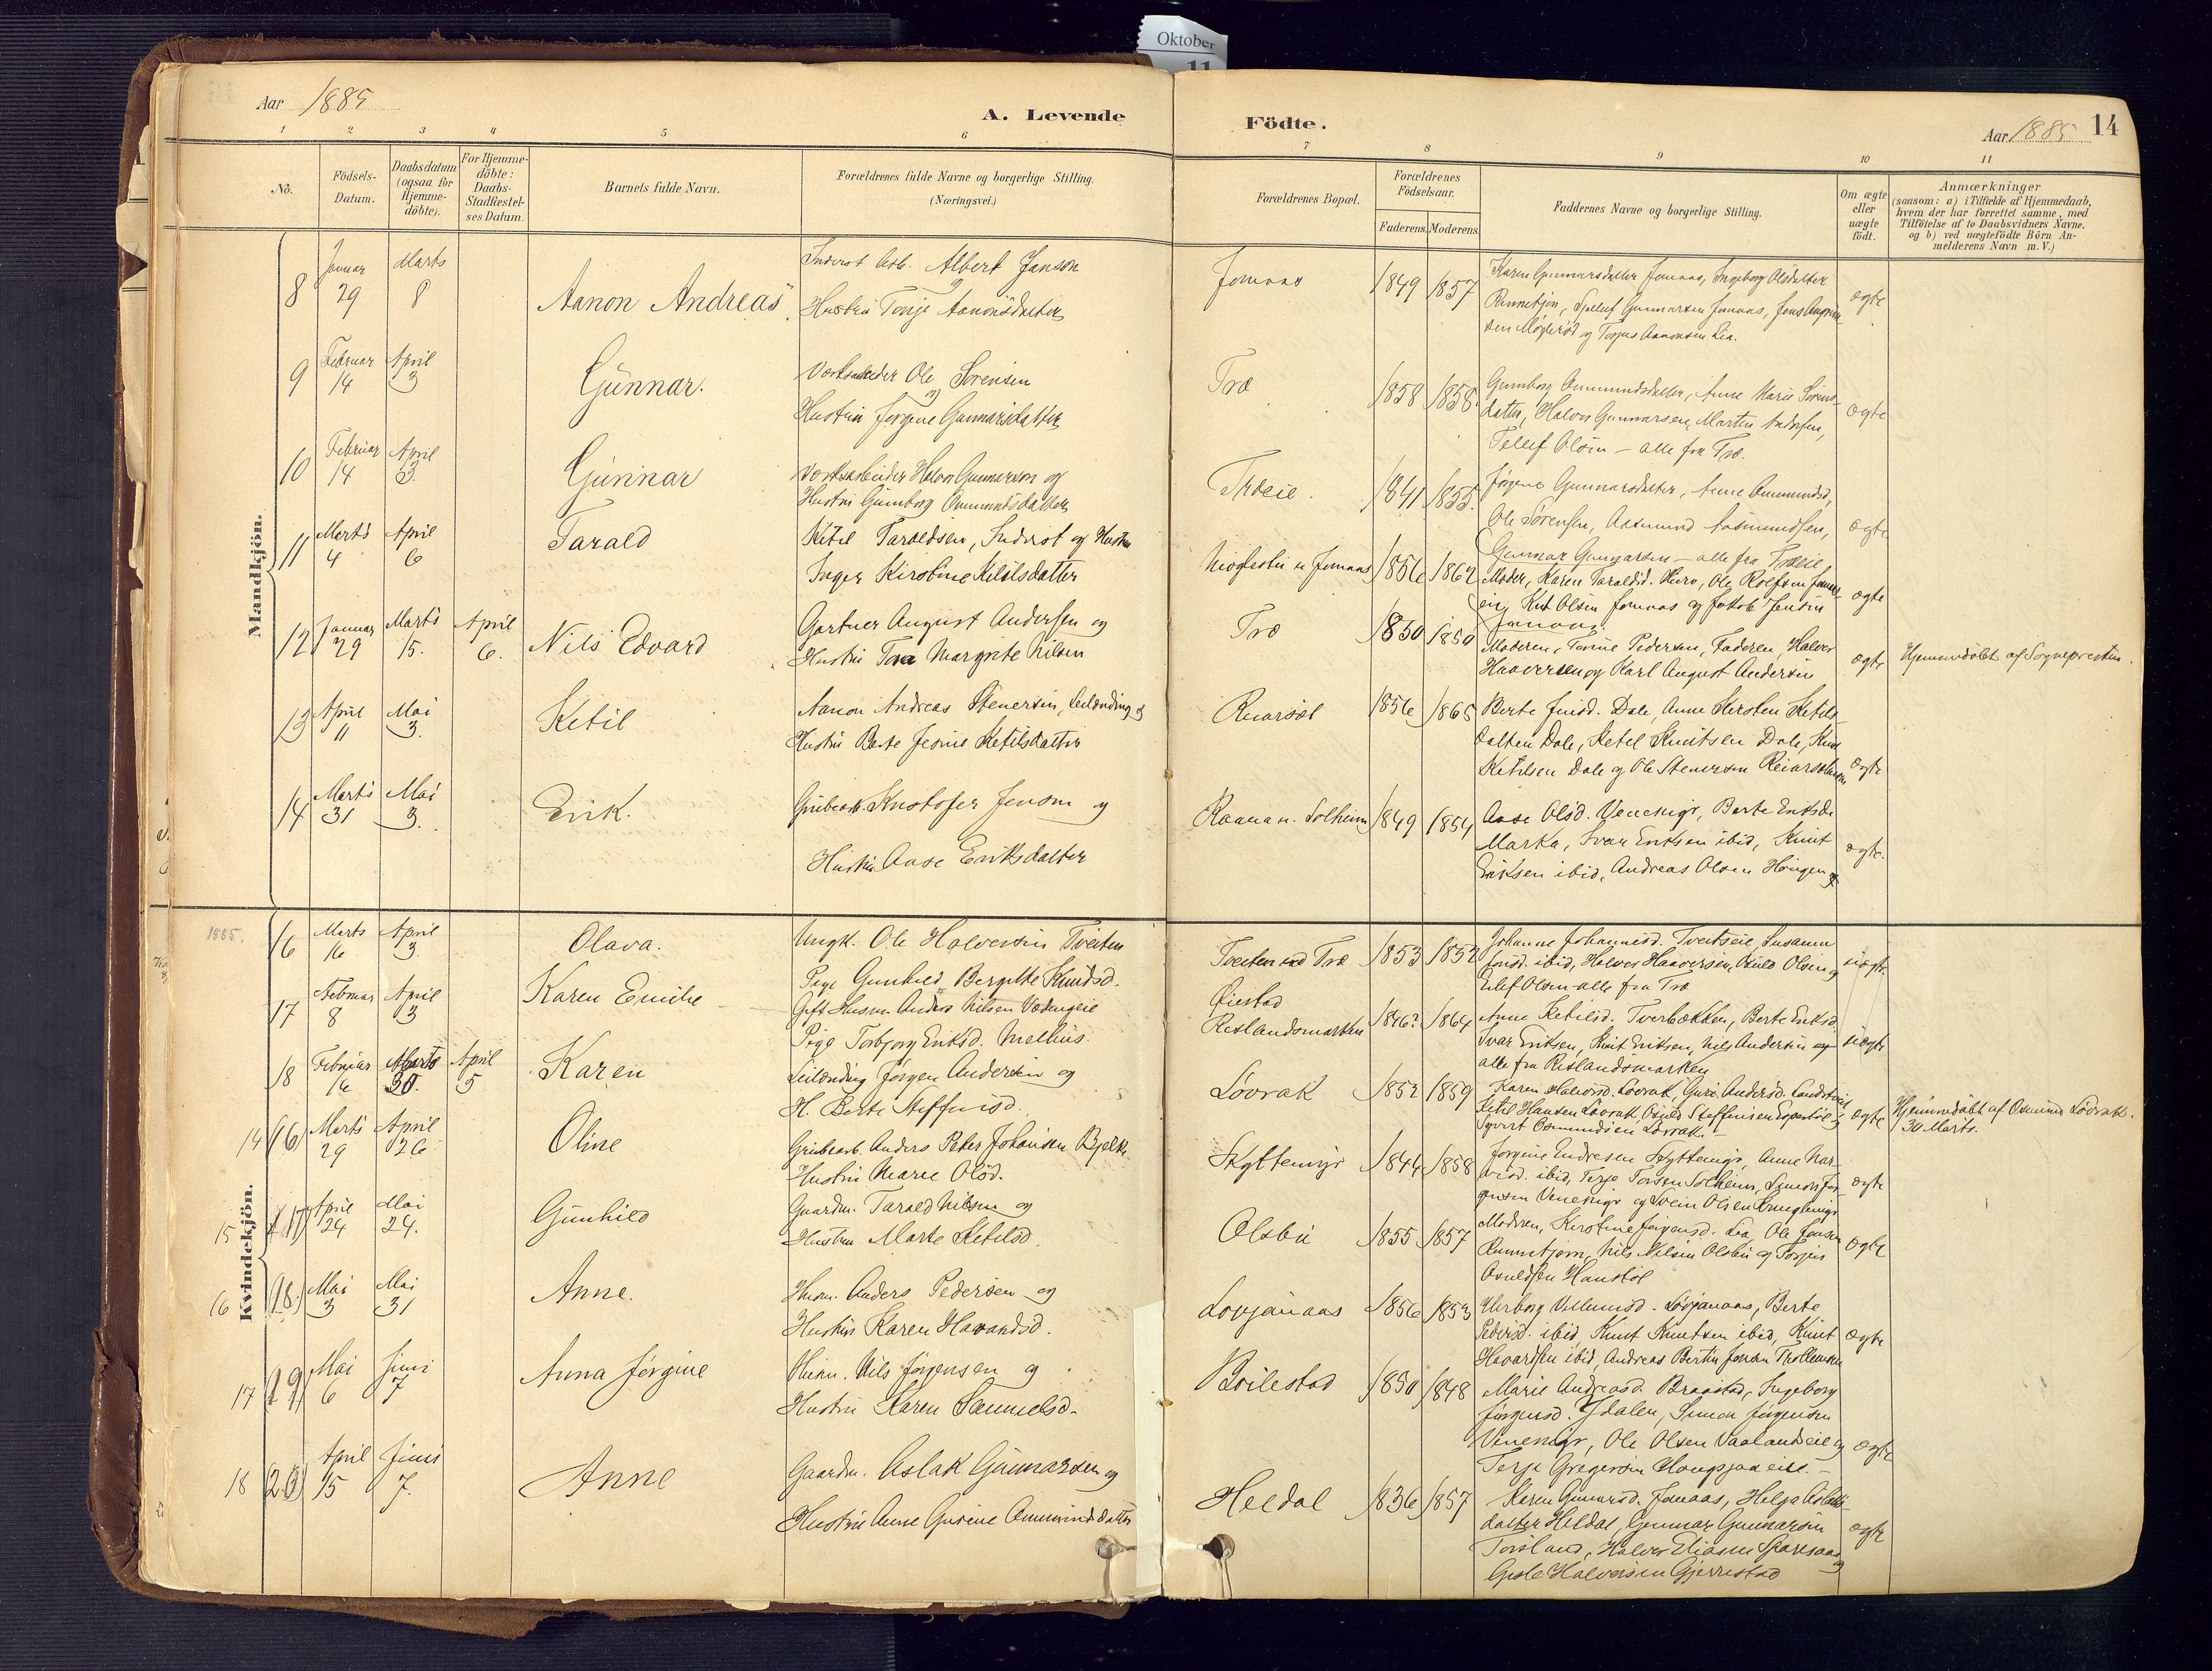 Oktober
11
Aar 1885
A. Levende
Födte.
Aar 1885
14
1 2 3 4 5 6 7 8 9 10 11
No.
Födsels-Datum.
Daabsdatum (ogsaa for Hjemme-döbte).
For Hjemme-döbte: Daabs-Stadfæstel-ses Datum.
Barnets fulde Navn.
Forældrenes fulde Navne og borgerlige Stilling.
(Næringsvei.)
Forældrenes Bopæl.
Forældrenes Födselsaar.
Faderens. Moderens.
Faddernes Navne og borgerlige Stilling.
Om ægte eller uægte födt.
Anmærkninger
(saasom: a) i Tilfælde af Hjemmedaab,
hvem der har forrettet samme, med
Tilföielse af to Daabsvidners Navne.
og b) ved uægtefödte Börn An-
melderens Navn m. V.)
Mandkjön.
8 Januar 29 Marts 8 Aanon Andreas
Inderst Arb. Albert Janson
og
Hustru Tonje Aanonsdatter
Jomaas 1849 1857
Karen Gunnarsdatter Jomaas, Ingeborg Olsdatter
Rennetjøn, Gunnarsen Jomaas, Jens
og Torjus Aanonsen Lia.
ægte
9 Februar 14 April 3 Gunnar.
Værksarbeider Ole Sørensen
og
Hustru Jørgine Gunnarsdatter
Træ 1858 1858.
Gunborg Ommundsdatter, Anne Marie Sørens-
datter, Halvor Gunnarsen, Martin Andersen,
Tellef Olsen - alle fra Træ.
ægte
10 Februar 14 April 3. Gunnar
Værksarbeider Halvor Gunnarson og
Hustru Gunborg Ommundsdatter
Træeie. 1841 1855.
Jørgine Gunnarsdatter, Anne Ommundsd,
Ole Sørensen, Aasmund Aasmundsen,
Gunnar Gunnarsen - alle fra Træeie
ægte
11 Marts 4 April 6 Tarald
Ketil Taraldsen, Inderst og Hustru
Inger Kirstine Ketilsdatter
Jomaas 1856 1862
Moder, Karen Taraldsd. Ole Rolfsen Jomas-
eie, Knt Olsen Jomaas og Jakob Jensen
Jomaas.
ægte
12 Januar 29 Marts 15. April 6. Nils Edvard
Gartner August Andersen og
Hustru Margrete Nilsen
Træ 1850 1850
Moderen, Pedersen, Faderen, Halvor
Haaversen og Karl August Andersen
ægte Hjemmedøbt af Sognepresten.
13 April 11 Mai 3. Ketil
Aanon Andreas Stenersen, Leilænding og
Hustru Berte Jesine Ketilsdatter
1856 1865
Berte Jensd. Dale, Anne Kirsten Ketils-
datter Dale, Ketel Knutsen Dale, Knut
Ketilsen Dale og Ole Stenersen
ægte
14 Marts 31 Mai 3. Erik.
Grubearb. Kristofer Jenson og
Hustru Aase Eriksdatter
Raana n. Solheim 1849 1854
Aase Olsd. Venemyr, Berte Eriksdr
Marka, Ivar Eriksen ibid, Knut
Eriksen ibid, Andreas Olsen
ægte.
1885.
Kvindekjön.
16 Marts 16 April 3 Olava.
Ungk. Ole Halvorsen Tveiten
Pige Gunhild Bergitte Knudsd.
Tveiten ved Træ 1853 1852
Johanne Johannesd. Tveitseie, Susanne
Jensd. ibid, Halvor Haaversen, Osuld Olsen og
Eilef Olsen alle fra Træ
uægte
17 Februar 8 April 3 Karen Emilie
Gift Husm. Anders Nilsen Vedengeie
Pige Torbjørg Eriksd. Melhus.
Øiestad
Rislandsmarken 1846? 1864
Anne Ketilsd. Tverbækken, Berte Eriksd.
Ivar Eriksen, Knut Eriksen, Nils Andersen og
alle fra Rislandsmarken
uægte
18 Februar 16 Marts 30. April 5 Karen
Leilænding Jørgen Andersen og
H. Berte Steffensd.
Løvrak 1852 1859
Karen Halvorsd. Løvrak, Guri Andersd.
Ketil Hansen Løvrak, Osuld Steffensen Espestøl og
Sjvert Osmundsen Løvrak.
ægte Hjemmedøbt af Osmund Løvrak.
30 Marts.
14 (16) Marts 29 April 26 Oline
Grubearb. Anders Peter Johansen Bjelke
Hustru Maren Olsd.
Skyttemyr 1844 1858
Jørgine Endresen Skyttemyr, Anne
ibid, Terje Torsen Solheim, Simon Jør-
gensen Venemyr og Svein Olsen
ægte
15 (17) April 24 Mai 24. Gunhild
Gaardm. Tarald Nilsen og
Hustru Marte Ketilsd.
Olsbu 1855 1857
Moderen, Kirstine Jørgensd. Lia, Ole Jensen
Rennetjørn, Nils Nilsen Olsbu og Torjus
Osuldsen Haustøl
ægte
16 (18.) Mai 3 Mai 31 Anne.
Husm. Anders Pedersen og
Hustru Karen Havardsd.
Lovjanaas 1856 1853
Villumsd. Lovjanaas, Berte
Pedersd. ibid, Knut Knutsen ibid, Knut
Havardsen ibid, Andreas Bertin Jensen
ægte
17 19 Mai 6 Juni 7 Anna Jørgine
Husm. Nils Jørgensen og
Hustru Karen Samuelsd.
Bøilestad 1850 1848
Marie Andreasd. Braastad, Ingeborg
Jørgensd. Ydalen, Simon Jørgensen
Venemyr, Ole Olsen Vaalandseie og
Terje Gregersen
ægte
18 (20) April 15 Juni 7. Anne
Gaardm. Aslak Gunnarsen og
Hustru Anne Gurine Ommundsdatter
Heldal 1836 1857
Karen Gunnarsd. Jomaas, Helga Aslaks-
datter Heldal, Gunnar Gunnarsen
Torsland, Halvor Eliasen og
Gisle Halvorsen Gjerrestad
ægte